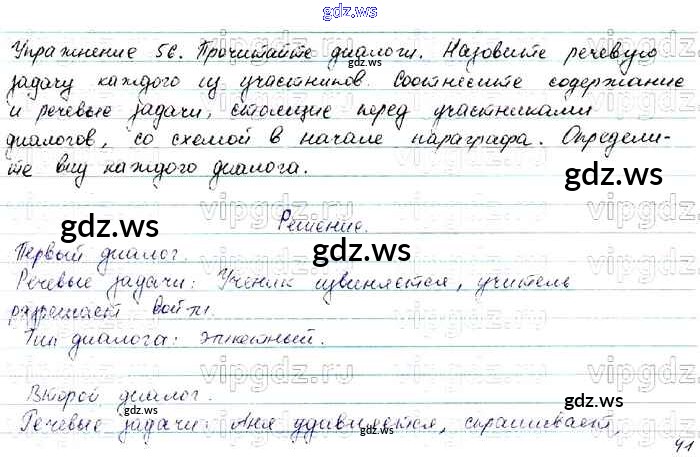 gdz.ws
Упражнение 56. Прочитайте диалоги. Назовите речевую
задачу каждого из участников. Соотнесите содержание
и речевые задачи, стоящие перед участниками
диалогов, со схемой в начале параграфа. Определи-
те вид каждого диалога.
gdz.ws
gdz.ws
gdz.ws
Решение.
Первый диалог.
Речевые задачи: Ученик извиняется, учитель
разрешает войти.
Тип диалога: этикетный.
gdz.ws
gdz.ws
Второй диалог.
Речевые задачи: Аня удивляется, спрашивает,
41
gdz.ws
vipgdz.ru